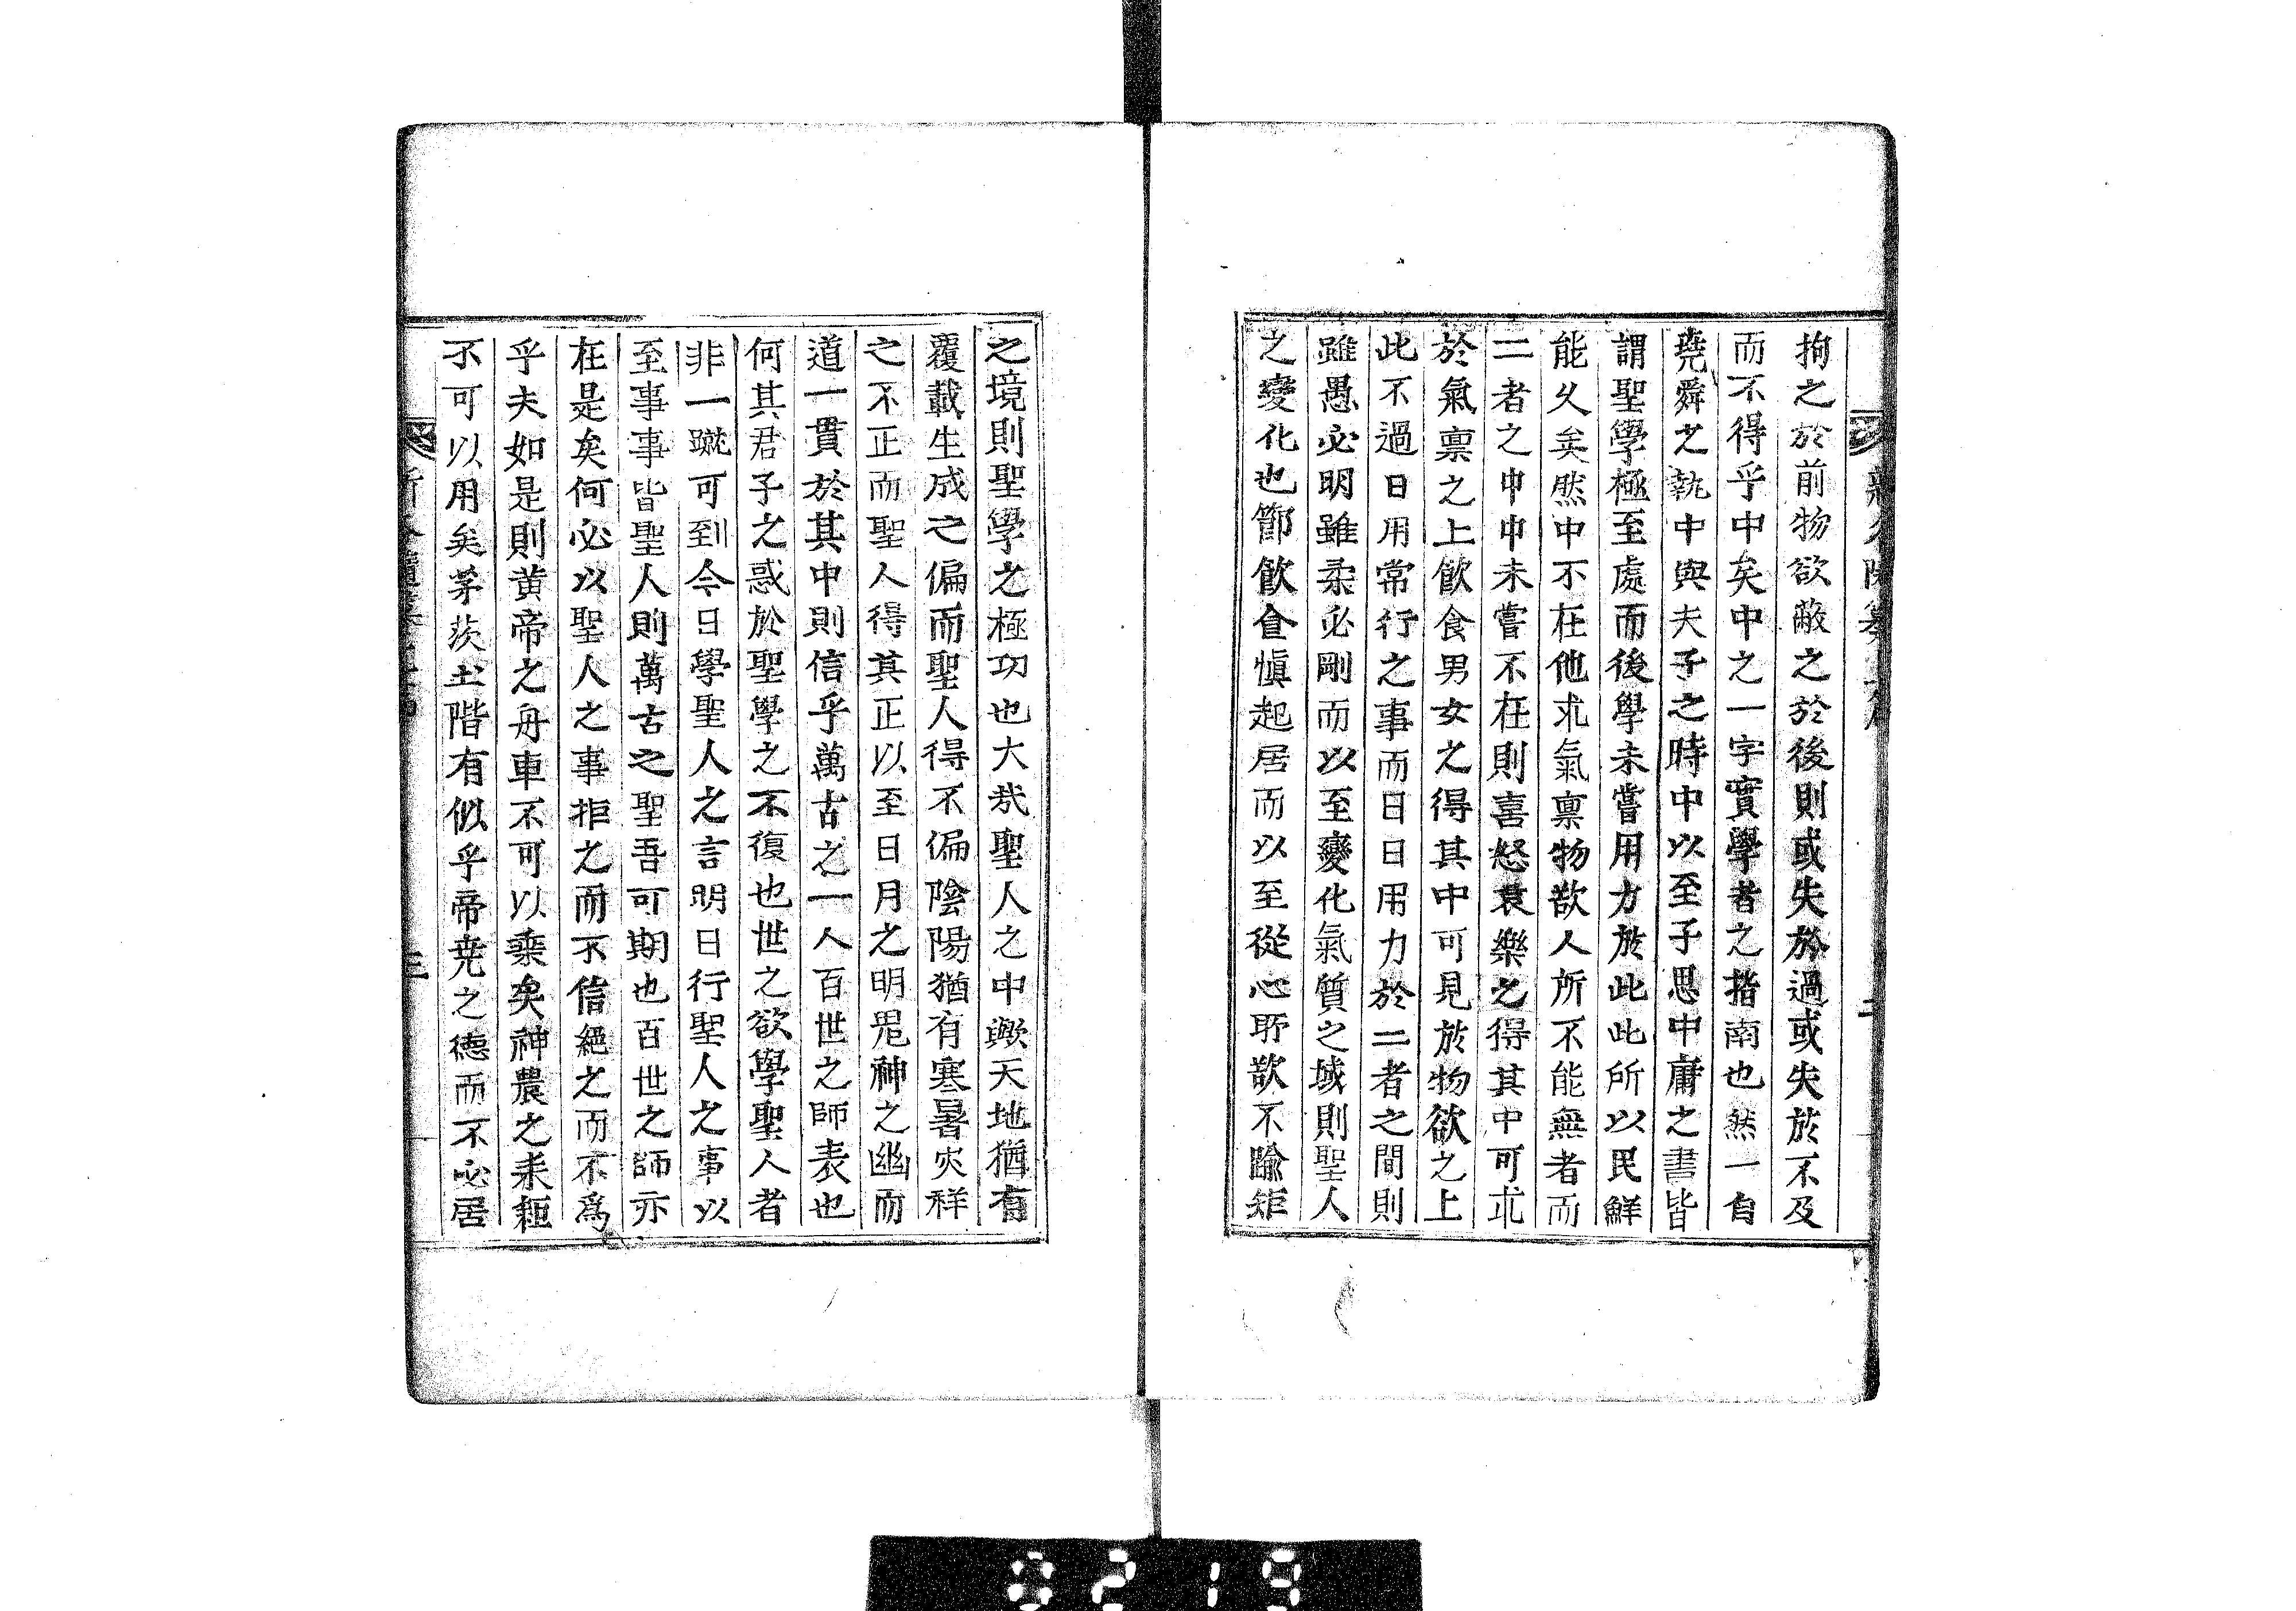 拘之於前物欲蔽之於後則或失於過或失於不及
而不得乎中矣中之一字實學者之指南也然一自
堯舜之執中與夫子之時中以至子思中庸之書皆
謂聖學極至處而後學未嘗用力於此此所以民鮮
能久矣然中不在他求氣禀物欲人所不能無者而
二者之中中未嘗不在則喜怒哀樂之得其中可求
於氣禀之上飮食男女之得其中可見於物欲之上
此不過日用常行之事而日日用力於二者之間則
雖愚必明雖柔必剛而以至變化氣質之域則聖人
之變化也節飮食愼起居而以至從心所欲不踰矩
之境則聖學之極功也大哉聖人之中歟天地猶有
覆載生成之偏而聖人得不偏陰陽猶有寒暑灾祥
之不正而聖人得其正以至日月之明鬼神之幽而
道一貫於其中則信乎萬古之一人百世之師表也
何其君子之惑於聖學之不復也世之欲學聖人者
非一蹴可到今日學聖人之言明日行聖人之事以
至事事皆聖人則萬古之聖吾可期也百世之師亦
在是矣何必以聖人之事拒之而不信絕之而不爲
乎夫如是則黄帝之舟車不可以乘矣神農之耒耟
不可以用矣茅茨土階有似乎帝堯之德而不必居
三
0219